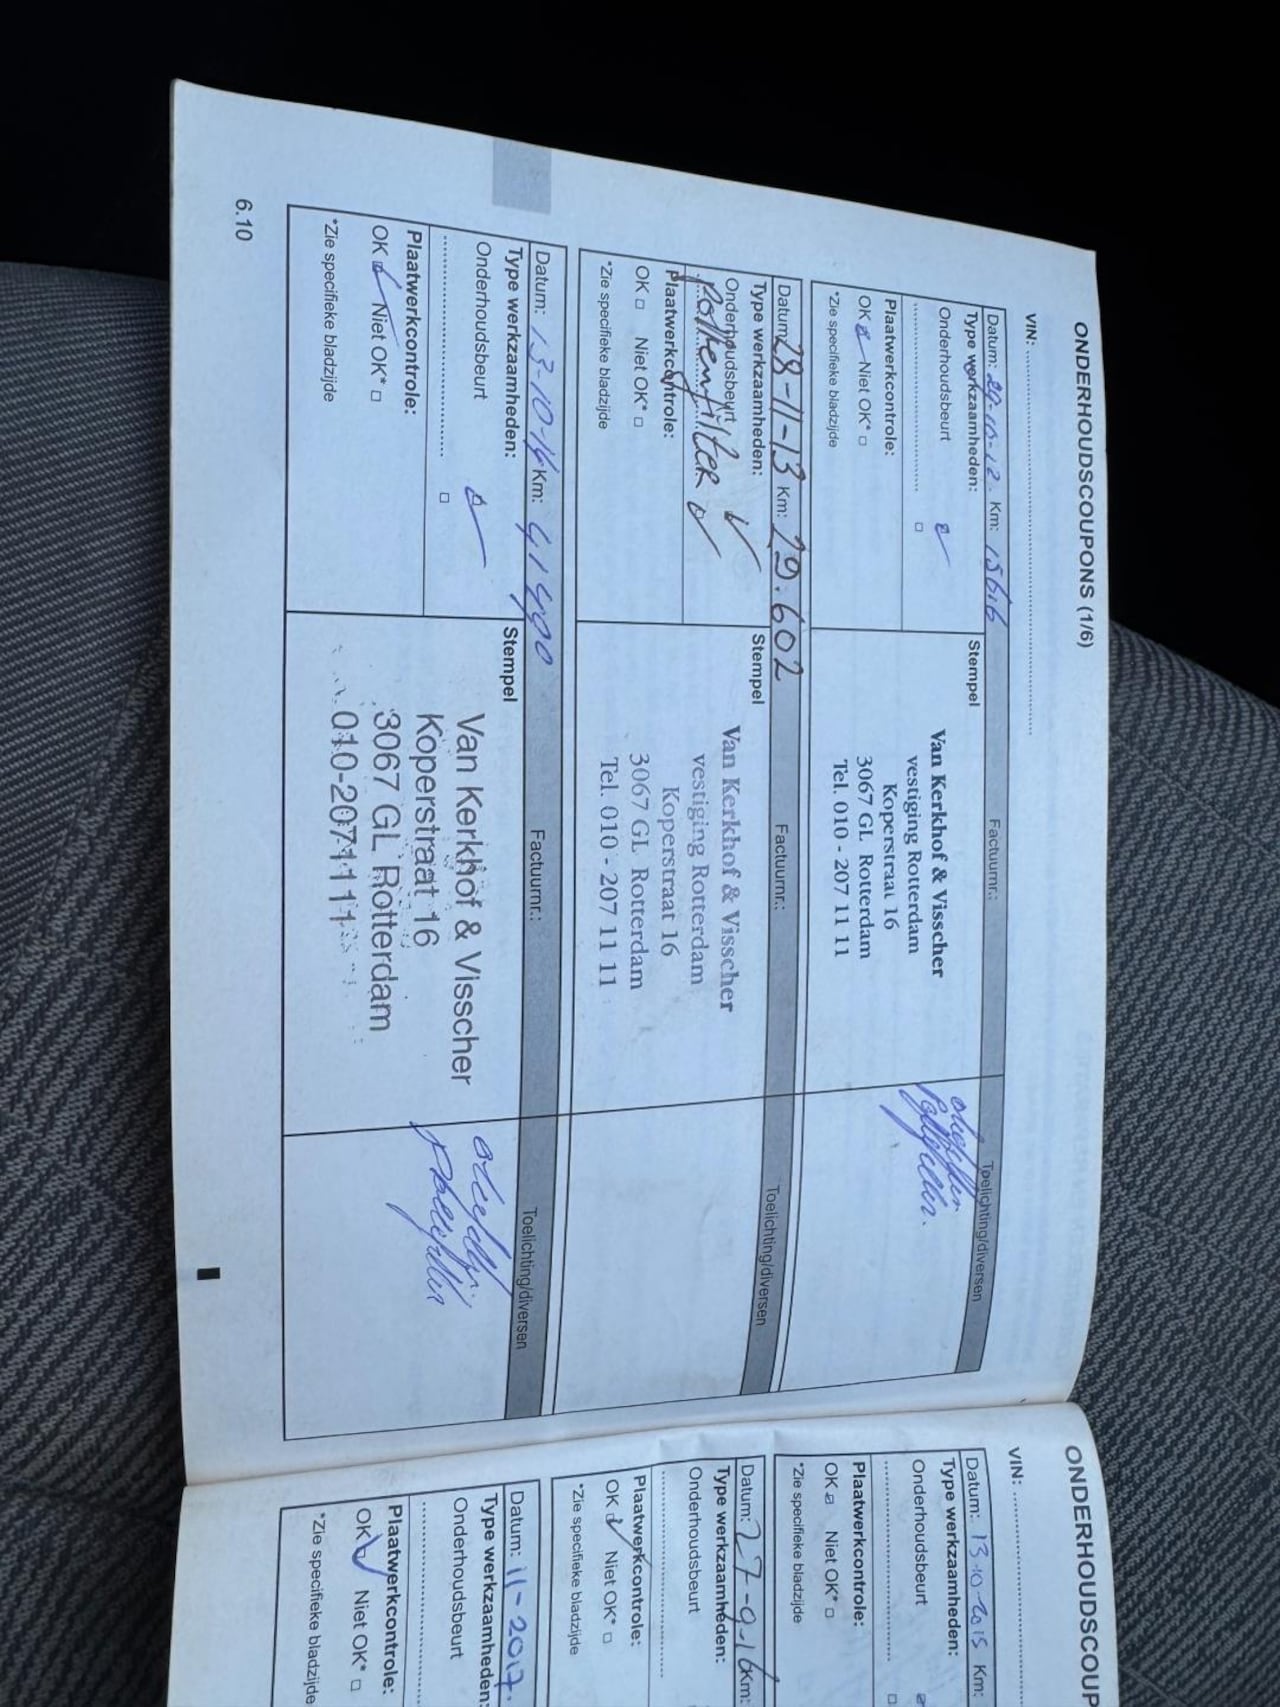 ONDERHOUDSCOUPONS (1/6)
VIN:
Datum: 29-10-12. Km: 15616 Factuurnr.: Toelichting/diversen
Type werkzaamheden:
Onderhoudsbeurt
Plaatwerkcontrole:
OK Niet OK*
*Zie specifieke bladzijde
Stempel
Van Kerkhof & Visscher
vestiging Rotterdam
Koperstraat 16
3067 GL Rotterdam
Tel. 010 - 207 11 11
Datum: 28-11-13 Km: 29.602 Factuurnr.: Toelichting/diversen
Type werkzaamheden:
Onderhoudsbeurt
Pollenfilter
Plaatwerkcontrole:
OK Niet OK*
*Zie specifieke bladzijde
Stempel
Van Kerkhof & Visscher
vestiging Rotterdam
Koperstraat 16
3067 GL Rotterdam
Tel. 010 - 207 11 11
Datum: 13-10-14 Km: 41490 Factuurnr.: Toelichting/diversen
Type werkzaamheden:
Onderhoudsbeurt
Plaatwerkcontrole:
OK Niet OK*
*Zie specifieke bladzijde
Stempel
Van Kerkhof & Visscher
Koperstraat 16
3067 GL Rotterdam
010-2071111
6.10
ONDERHOUDSCOUP
VIN:
Datum: 13-10-2015 Km:
Type werkzaamheden:
Onderhoudsbeurt
Plaatwerkcontrole:
OK Niet OK*
*Zie specifieke bladzijde
Datum: 27-9-16 Km:
Type werkzaamheden:
Onderhoudsbeurt
Plaatwerkcontrole:
OK Niet OK*
*Zie specifieke bladzijde
Datum: 11-2017.
Type werkzaamheden:
Onderhoudsbeurt
Plaatwerkcontrole:
OK Niet OK*
*Zie specifieke bladzijde